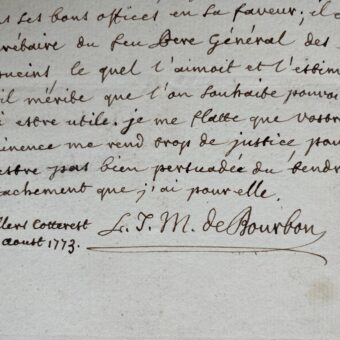 les bons offices en sa faveur; il
rébaire du feu Pere Général des
rucins le quel l'aimoit et l'estim
il méribe que l'on souhaibe pouvoi
i estre utile. je me flatte que vostre
inence me rend trop de justice pou
estre pas bien persuadée du tendr
tachement que j'ai pour elle.
llers Cotterest
aoust 1773.
L. J. M. de Bourbon